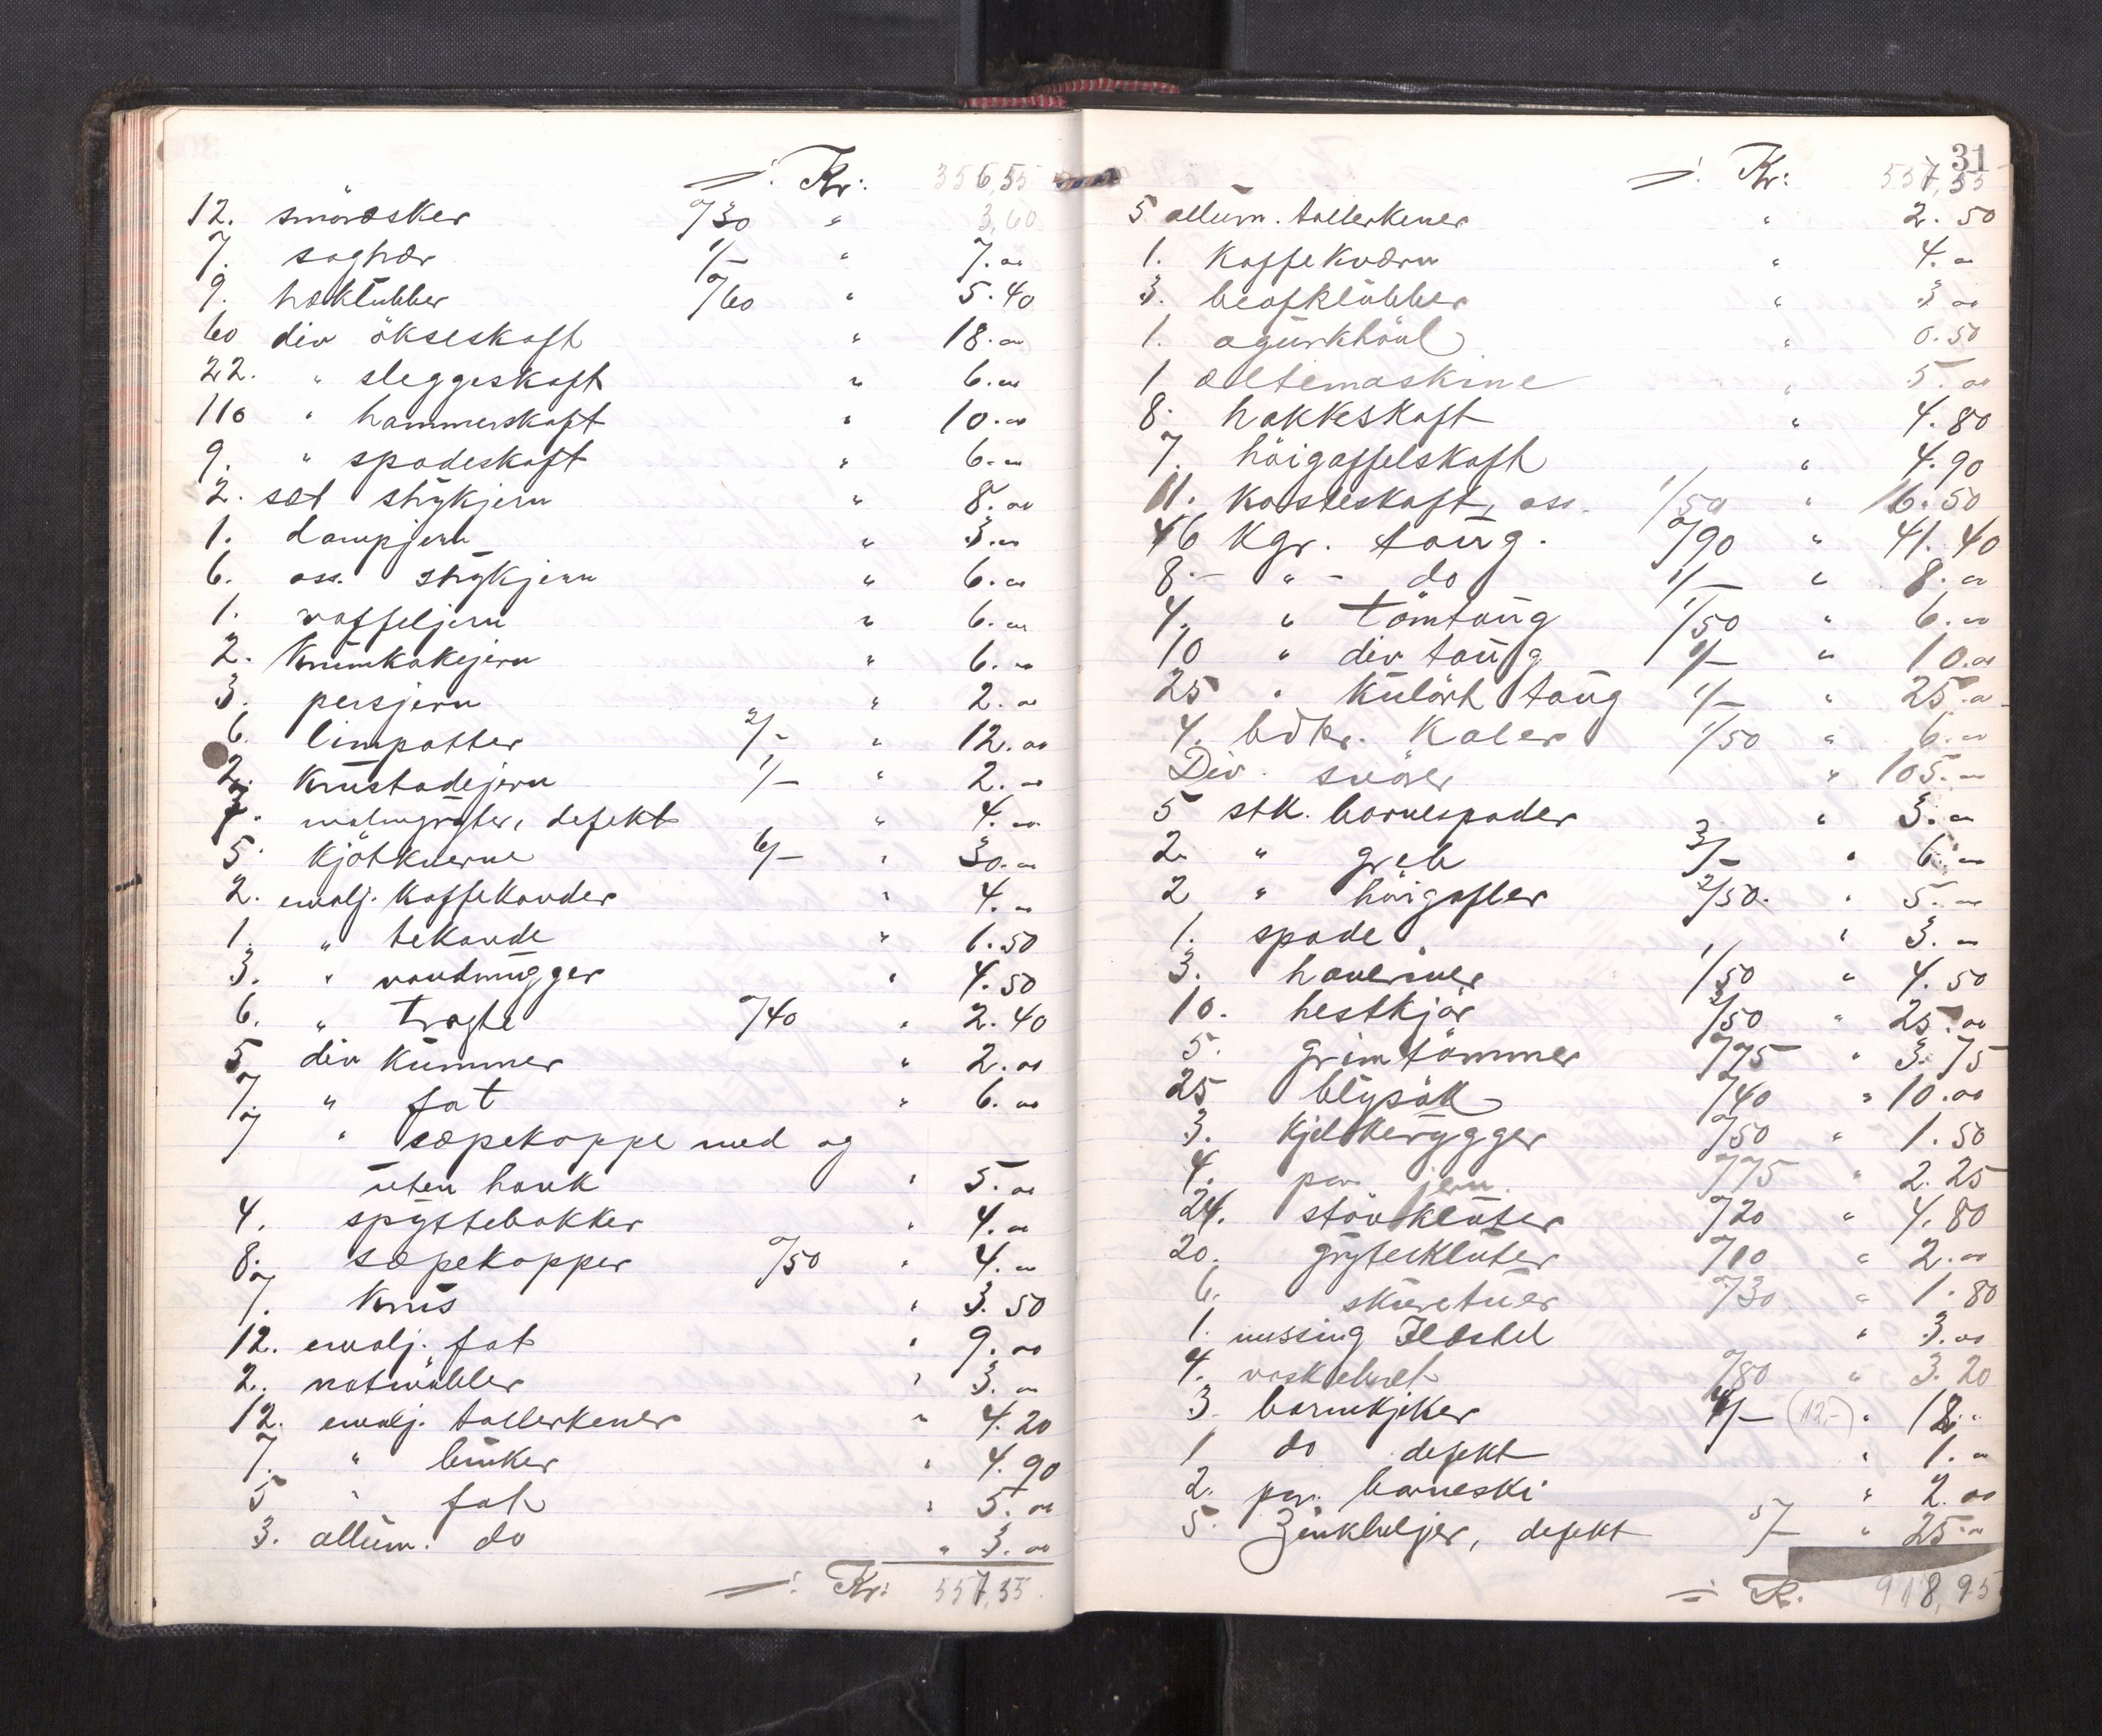 ⹀: Kr: 356,55
12. smöræsker 0/30 " 3,60
7. saghær 1/- " 7.00
9. hæklubber 0/60 " 5.40
60 div ökseskaft " 18.00
22. " sleggeskaft " 6.00
110 " hammerskaft " 10.00
9. " spadeskaft " 6.00
2. sæt strykjern " 8.00
1. dampjern " 3.00
6. ass. strykjern " 6.00
1. vaffeljern " 6.00
2. krumkakejern " 6.00
3. persjern " 2.00
6. limpotter 2/- " 12.00
2. krustadejern 1/- " 2.00
malmgryter, defekt " 4.00
5. kjötkverne 6/- " 30.00
2. emalj. kaffekander " 4.00
1. " tekande " 1.50
3. " vandmugger " 4.50
6. " tragte 0/40 " 2.40
5 div kummer " 2.00
7. " fat " 6.00
7 " sæpekoppe med og
uten hank " 5.00
4. spyttebakker " 4.00
8. sæpekopper 0/50 " 4.00
7. krus " 3.50
12. emalj. fat " 9.00
2. " 3.00
12. emalj. tallerkener " 4.20
7. " " 4.90
5 " fat " 5.00
3. allum. do " 3.00
⹀: Kr: 557,55
31
⹀: Kr: 557,55
5 allum. tallerkener " 2.50
1. Kaffekværn " 4.00
3. beafklubber " 3.00
1. agurkhövl " 0.50
1 æltemaskine " 5.00
8. hakkeskaft " 4.80
7. höigaffelskaft " 4.90
11. kosteskaft, ass. 1/50 " 16.50
46 Kgr. taug. 0/90 " 41.40
8.- " - do 1/- " 8.00
4. " tömtaug 1/50 " 6.00
10 " div taug 1/- " 10.00
25 " kulört taug 1/- " 25.00
4. bdtr. Kabel 1/50 " 6.00
Div. snörer " 105.00
5 stk. barnespader " 3.00
2. " greb 3/- " 6.00
2 " höigafler 2/50. " 5.00
1. spade " 3.00
3. haveriver 1/50 " 4.50
10. hestkjør 2/50 " 25.00
5. grimtömmer 0/75 " 3.75
25 blysøk 0/40 " 10.00
3. kjelkerygger 0/50 " 1.50
4. par jern 0/75 " 2.25
24. stövkluter 0/20 " 4.80
20. grytekluter 0/10 " 2.00
6. skuretuer 0/30 " 1.80
1. messing Ildstel " 3.00
4. 0/80 " 3.20
3. barnekjelker 4/- (12,-) " 12.
1 do defekt " 1.00
2. par. barneski " 2.00
5. Zinkbaljer, defekt 5/- " 25.00
⹀ K. 918,95